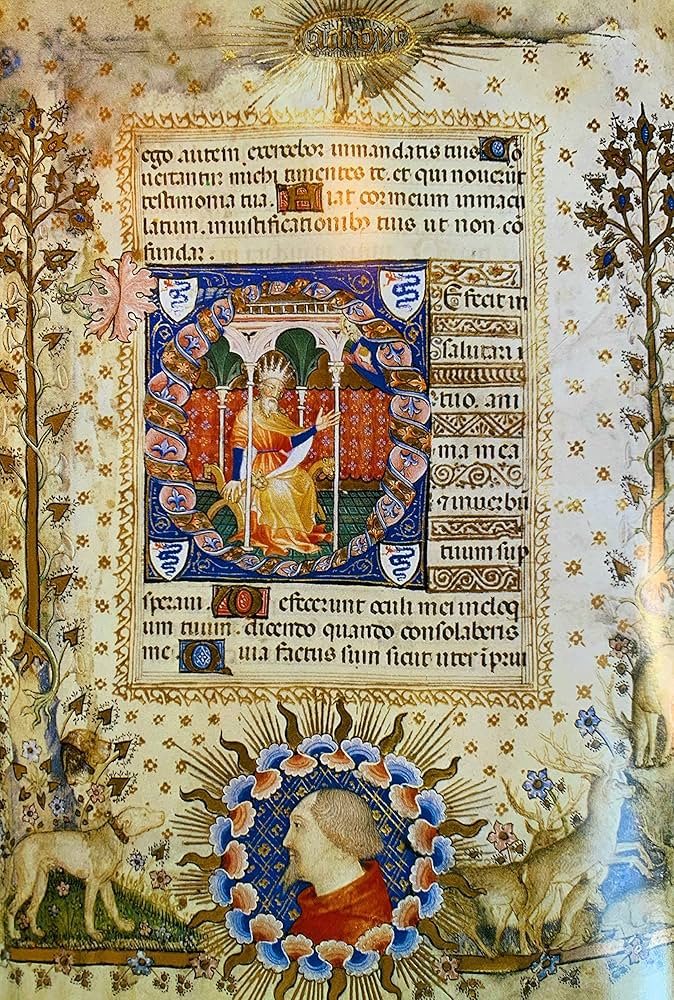 ego autem exercebor in mandatis tuis Co
uertantur michi timentes te. et qui nouerūt
testimonia tua. Fiat cor meum inmacu
latum. in iustificationibꝫ tuis ut non co
fundar.
Efecit in
salutari
tuo. ani
ma mea
⁊ in uerbū
tuum sup
speraui. Defecerunt oculi mei in eloq
um tuum. dicendo quando consolaberis
me. Quia factus sum sicut uter ī prui